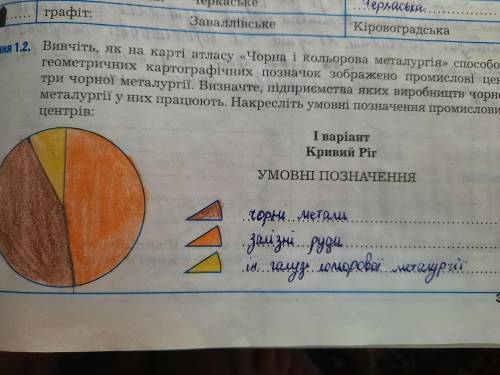 Черкаське
Черкаська
графіт:
Заваллівське
Кіровоградська
ння 1.2. Вивчіть, як на карті атласу «Чорна і кольорова металургія» способо
геометричних картографічних позначок зображено промислові цен
три чорної металургії. Визначте, підприємства яких виробництв чорно
металургії у них працюють. Накресліть умовні позначення промислови
центрів:
І варіант
Кривий Ріг
УМОВНІ ПОЗНАЧЕННЯ
чорні метали
залізні руди
галузі металургії